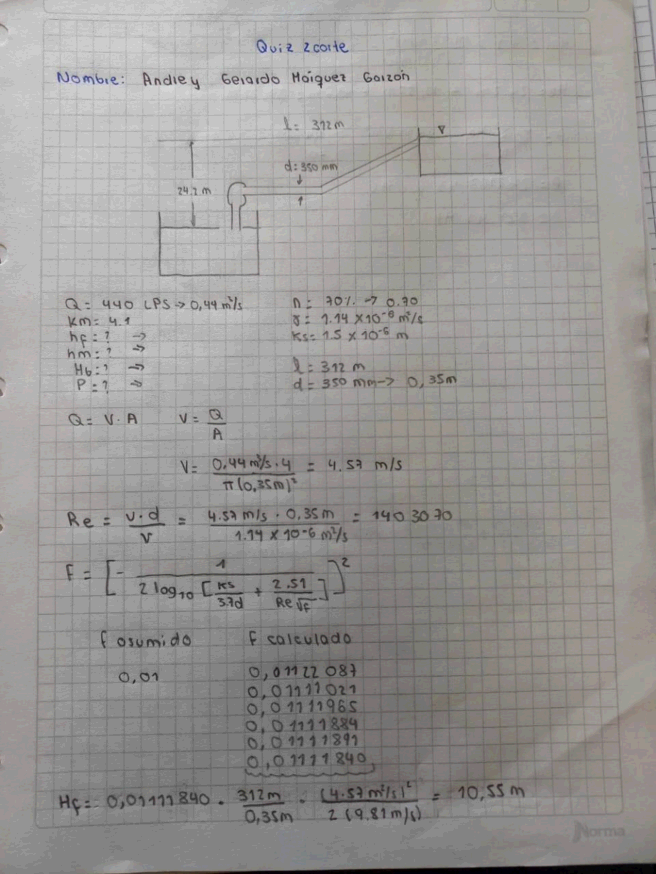 Quiz 2 corte
Nombre: Andrey Gerardo Maiquez Garzón
l = 312 m
d = 350 mm
24.2 m
Q = 440 LPS → 0,44 m³/s
Km = 4.1
hf = ? →
hm = ? →
Hb = ? →
P = ? →
n = 70% → 0.70
γ = 1.14 x 10⁻⁶ m²/s
Ks = 1.5 x 10⁻⁶ m
l = 312 m
d = 350 mm → 0,35m
Q = V · A V = Q/A
V = 0,44 m³/s · 4 / π(0,35m)² = 4.57 m/s
Re = v·d / ν = 4.57 m/s · 0,35m / 1.14 x 10⁻⁶ m²/s = 1403070
F = [- 1 / 2 log₁₀ [Ks/3.7d + 2.51/Re√f]]²
f asumido f calculado
0,01 0,01122087
0,01111021
0,01111965
0,01111884
0,01111891
0,01111840
Hf = 0,01111840 · 312m/0,35m · (4.57 m/s)²/2(9.81m/s) = 10,55 m
Norma